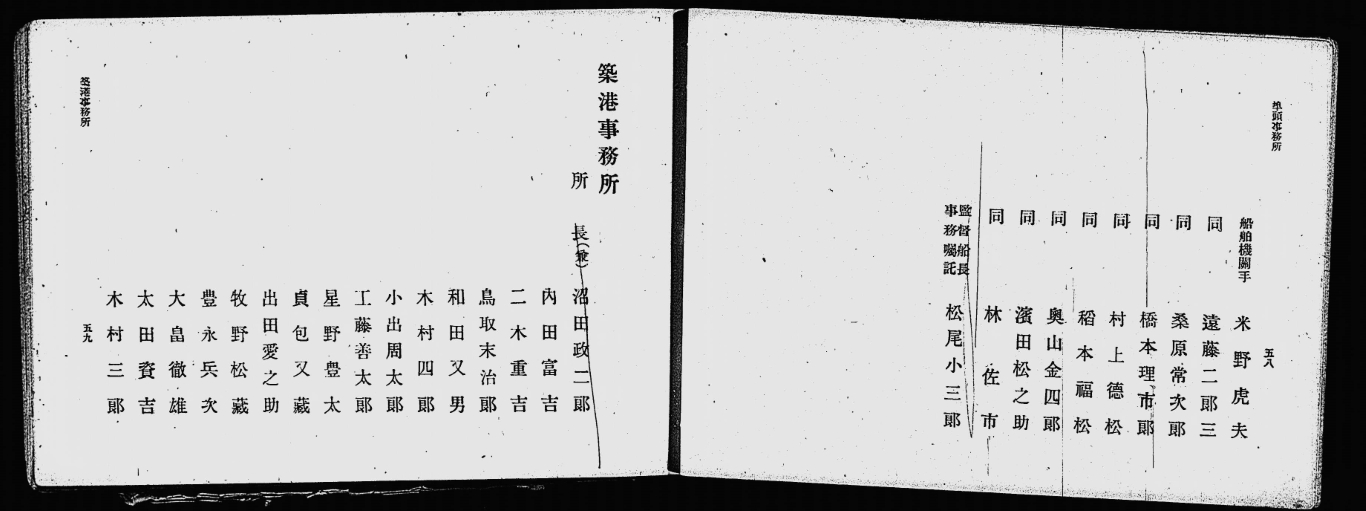 埠頭事務所
五八
船舶機關手 米野虎夫
同 遠藤二郎三
同 桑原常次郎
同 橋本理市郎
同 村上德松
同 稻本福松
同 奧山金四郎
同 濱田松之助
同 林佐市
監督船長
事務囑託 松尾小三郎
築港事務所
所長(兼) 沼田政二郎
內田富吉
二木重吉
鳥取末治郎
和田又男
木村四郎
小出周太郎
工藤善太郎
星野豊太
貞包又藏
出田愛之助
牧野松藏
豊永兵次
大畠徹雄
太田資吉
木村三郎
五九
築港事務所